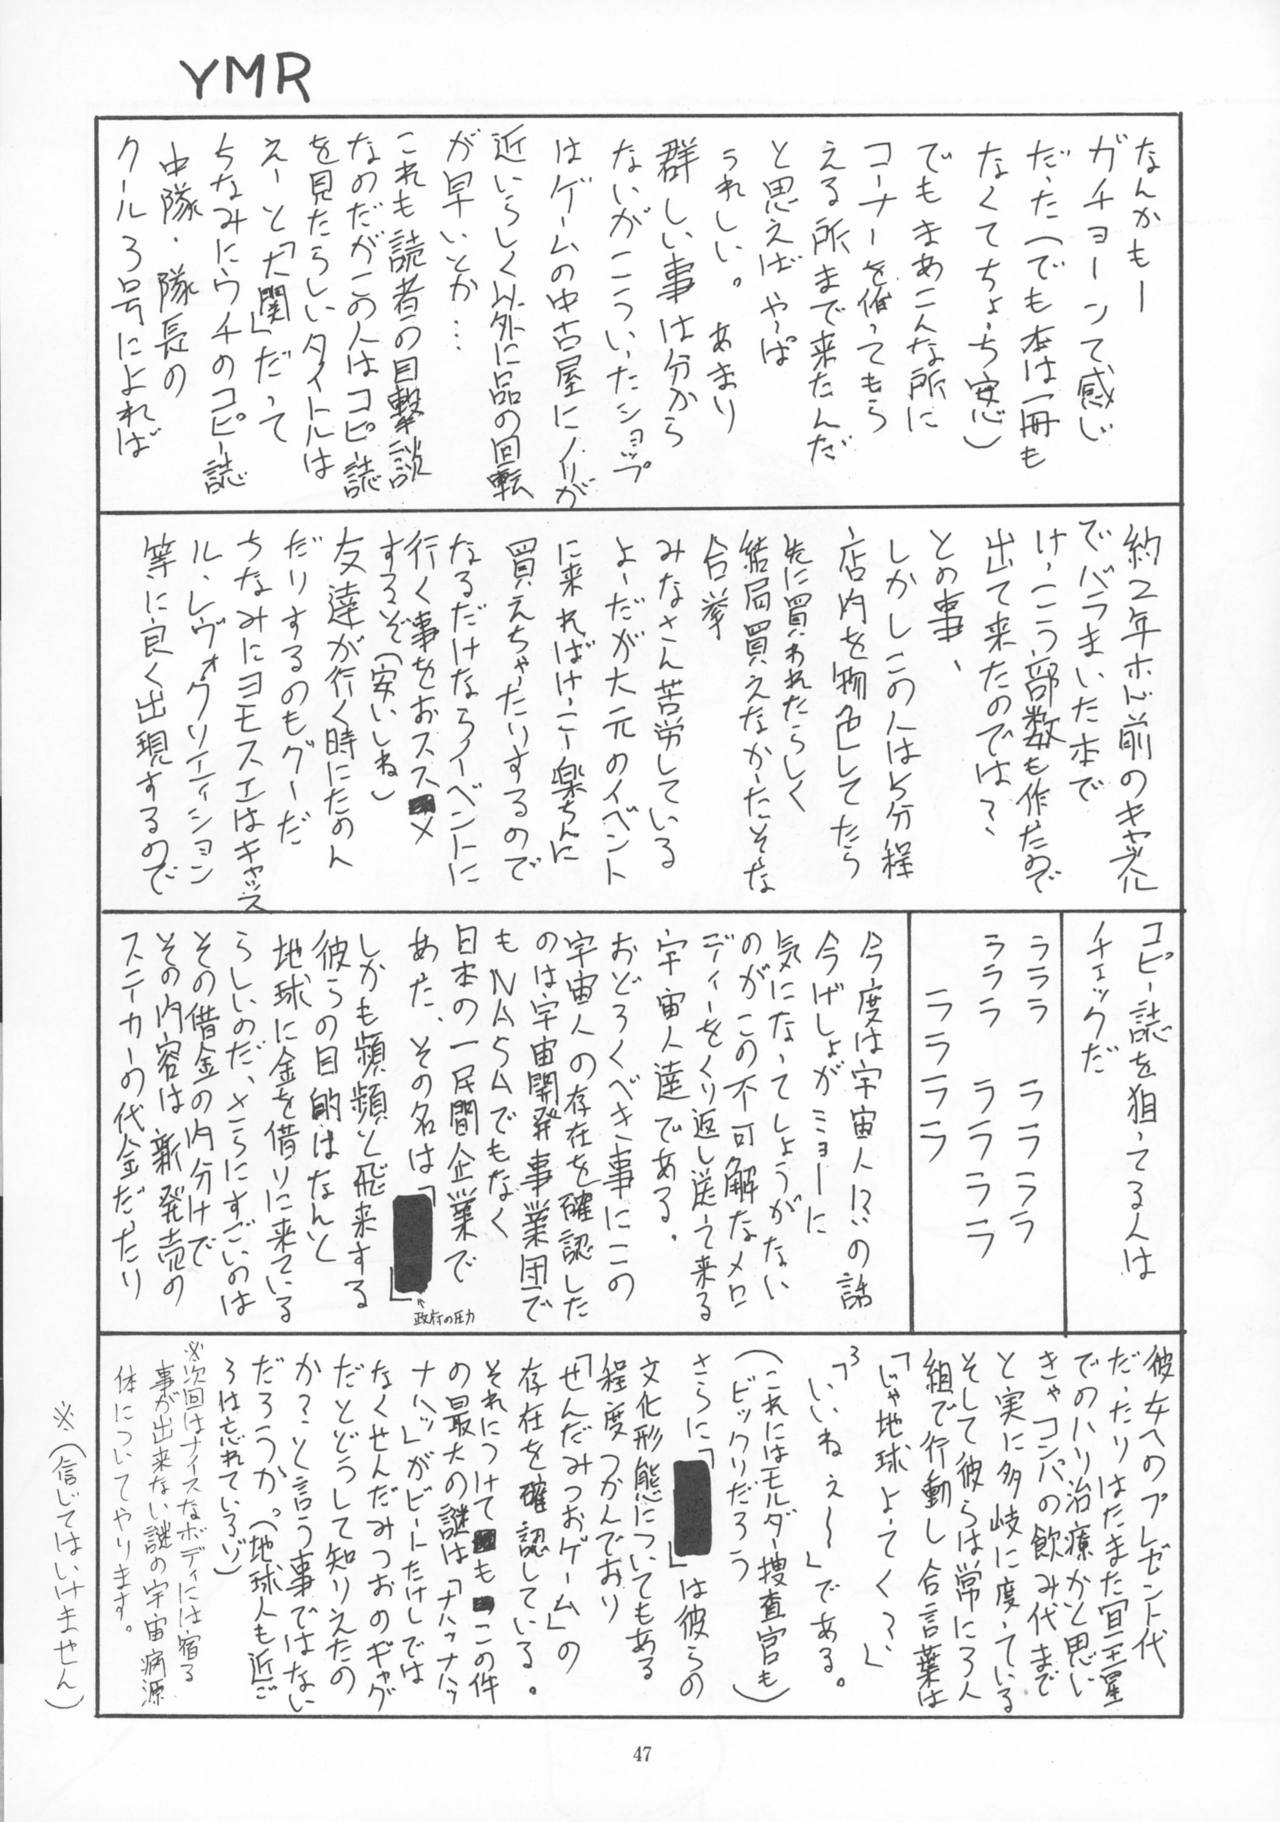 YMR
なんかもー
ガチョーンて感じ
だった(でも本は一冊も
なくてちょっち安心)
でもまあこんな所に
コーナーを作ってもら
える所まで来たんだ
と思えばやっぱ
うれしい。あまり
群しい事は分から
ないがこういったショップ
はゲームの中古屋にノリが
近いらしく以外に品の回転
が早いとか…
これも読者の目撃談
なのだがこの人はコピー誌
を見たらしいタイトルは
えーと「大関」だって
ちなみにウチのコピー誌
中隊・隊長の
クール3号によれば
約2年ホド前のキャッスル
でバラまいた本で
けっこう部数も作ったので
出て来たのでは?
との事、
しかしこの人は5分程
店内を物色してたら
先に買われたらしく
結局買えなかったそな
合掌
みなさん苦労している
よーだが大元のイベント
に来ればけっこー楽ちんに
買えちゃったりするので
なるだけならイベントに
行く事をおススメ
するぞ(安いしね)
友達が行く時にたのん
だりするのもグーだ
ちなみにヨモスエはキャッス
ル、レヴォ、クリエイション
等に良く出現するので
コピー誌を狙ってる人は
チェックだ
ラララ ララララ
ラララ ララララ
ララララ
今度は宇宙人!?の話
今げしょがミョーに
気になってしょうがない
のがこの不可解なメロ
ディーをくり返し送って来る
宇宙人達である。
おどろくべき事にこの
宇宙人の存在を確認した
のは宇宙開発事業団で
もNASAでもなく
日本の一民間企業で
あった、その名は「
」
←政府の圧力
しかも頻頻と飛来する
彼らの目的はなんと
地球に金を借りに来ている
らしいのだ、さらにすごいのは
その借金の内分けで
その内容は新発売の
スニーカーの代金だったり
彼女へのプレゼント代
だったりはたまた冥王星
でのハリ治療かと思い
きゃコンパの飲み代まで
と実に多岐に度っている
そして彼らは常に3人
組で行動し合言葉は
「じゃ地球よってく??」
「いいねぇ〜」である。
(これにはモルダー捜査官も
ビックリだろう)
さらに「
」は彼らの
文化形態についてもある
程度つかんでおり
「せんだみつおゲーム」の
存在を確認している。
それにつけても この件
の最大の謎は「ナハッナハッ
ナハッ」がビートたけしでは
なくせんだみつおのギャグ
だとどうして知りえたの
か?と言う事ではない
だろうか。(地球人も近ご
ろは忘れているゾ)
※次回はナイスなボディには宿る
事が出来ない謎の宇宙病源
体についてやります。
※(信じてはいけません)
47